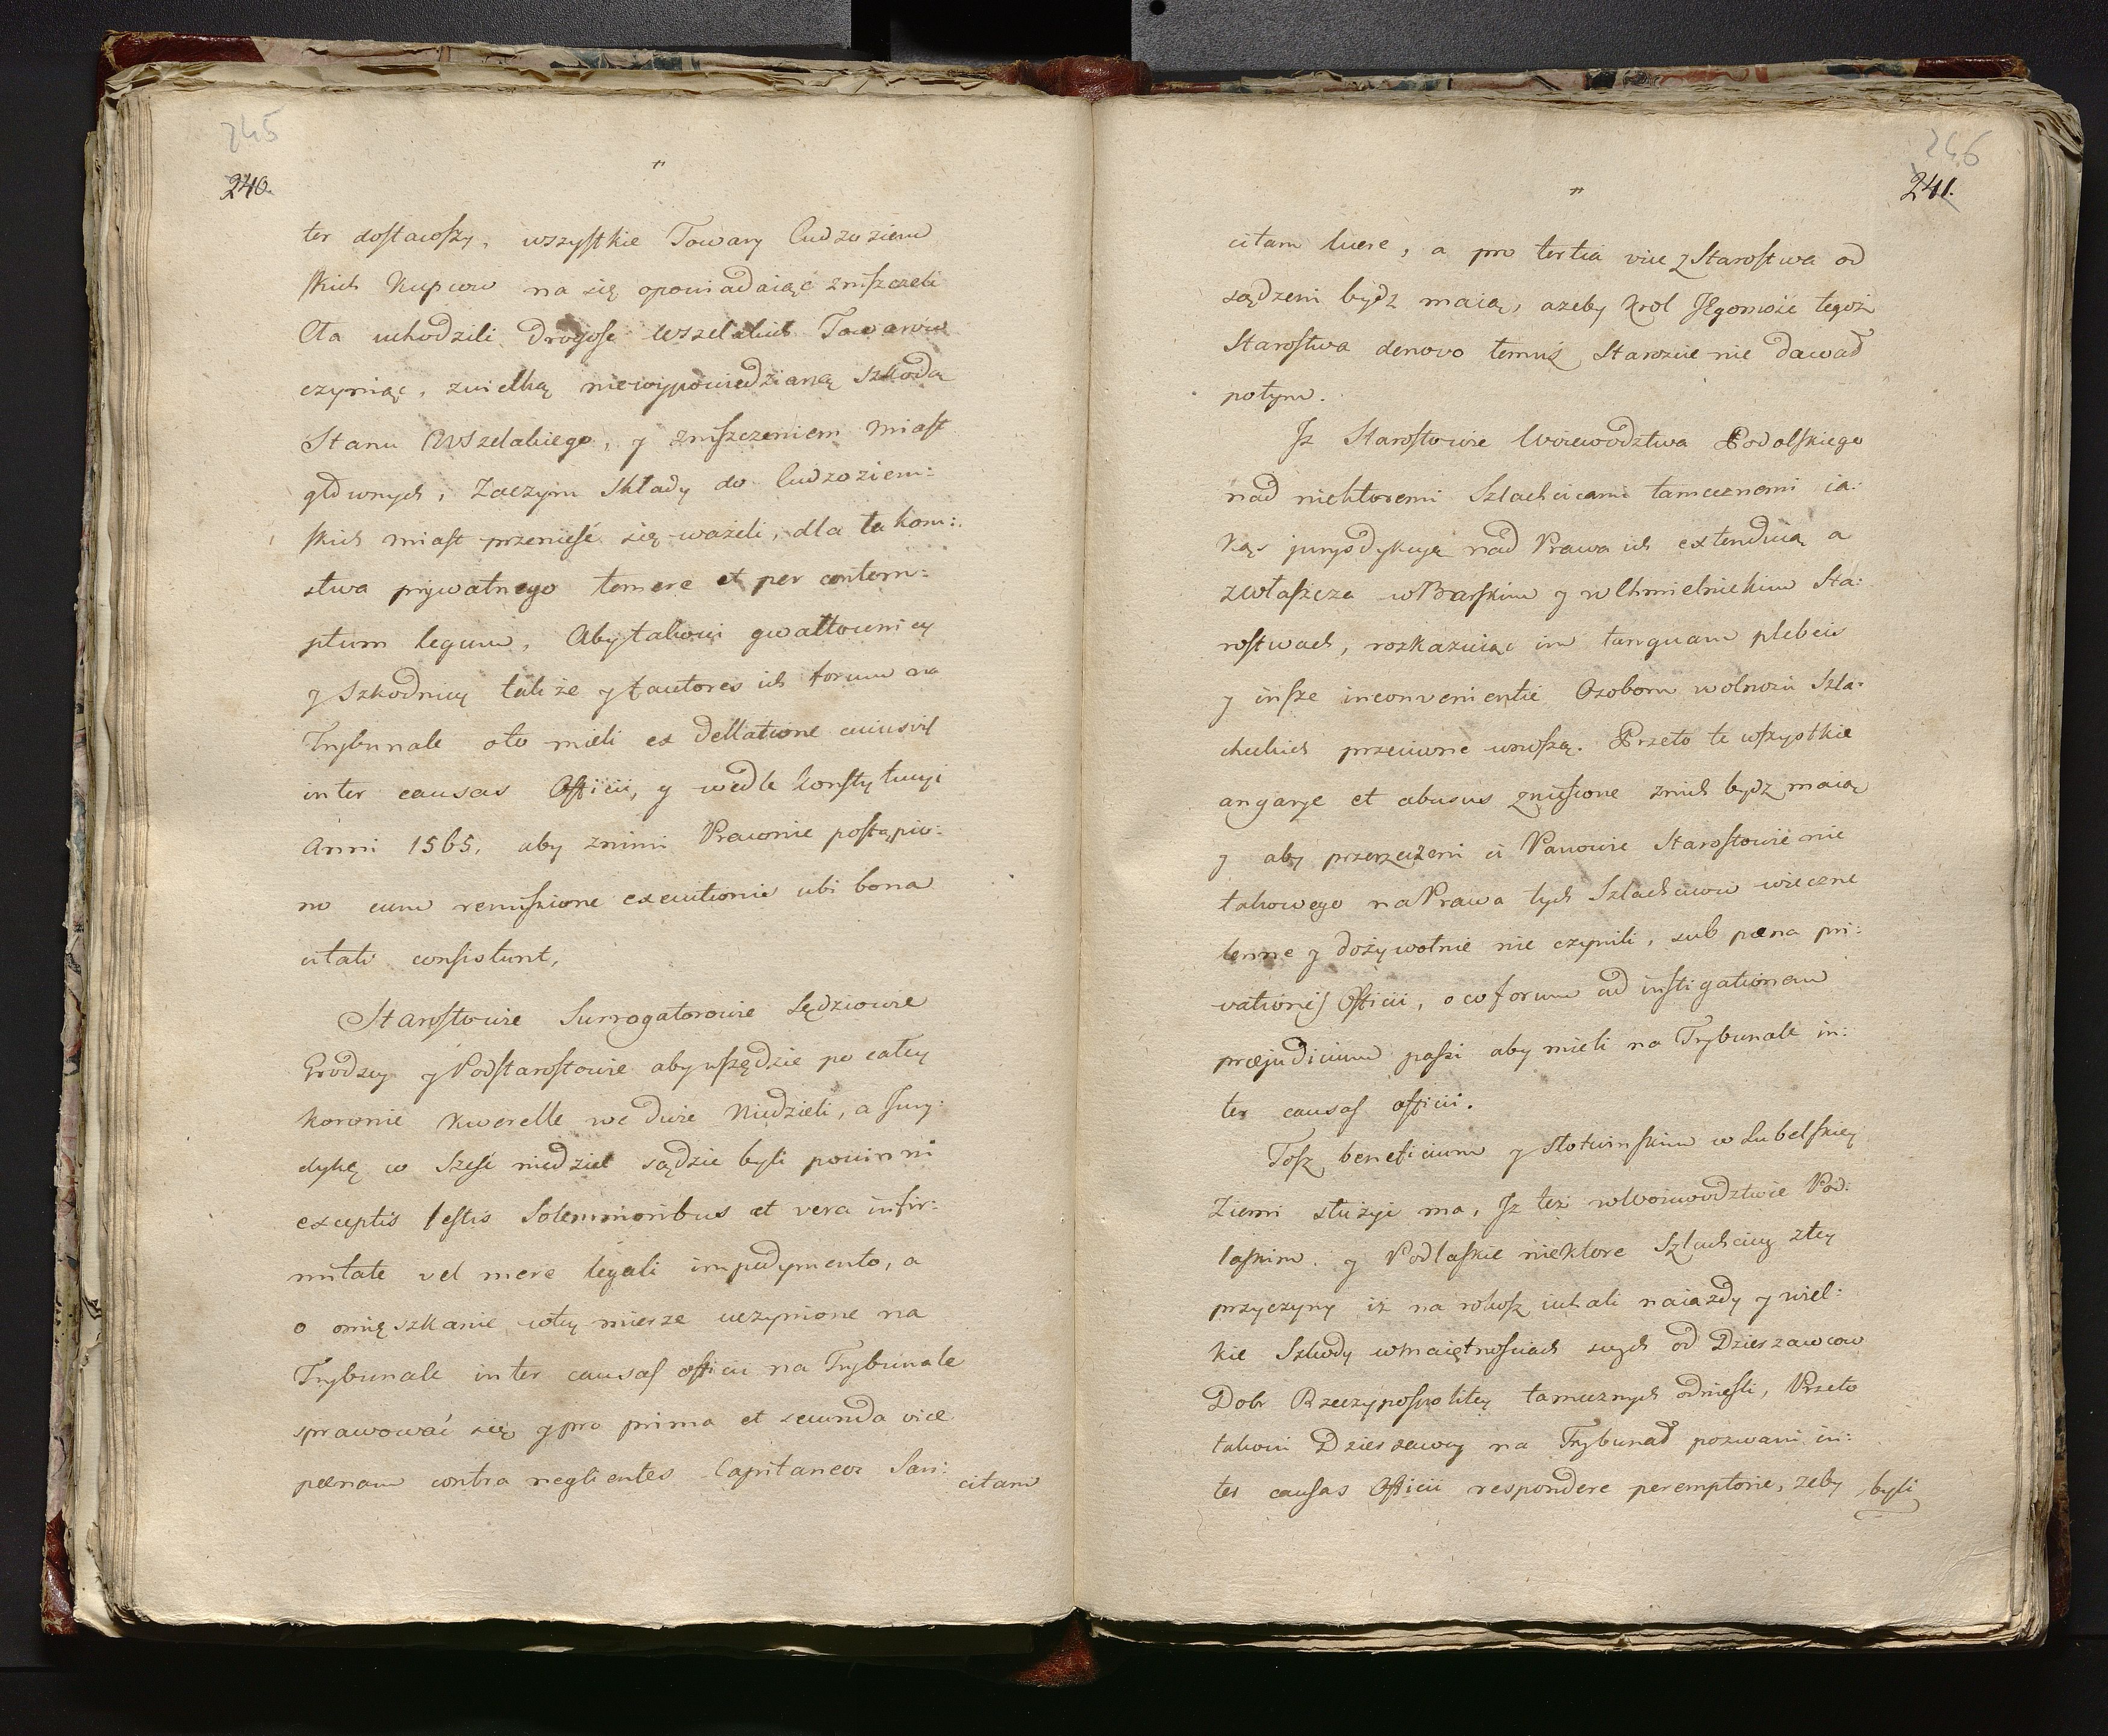 245
240.
"
ter dostawszy, wszystkie Towary Cudzoziem
skich Kupcow na się opowiadaiąc zniszczeli
Cła uchodzili Drogosc wszelakich Towarow
czyniąc, zwielką niewypowiedzianą szkodą
Stanu Wszelakiego, y zniszczeniem Miast
głownych, Zaczym Składy do Cudzoziem:
skich miast przenieść się ważeli, dla łakom:
stwa prywatnego temere et per contem:
ptum legum, Aby takowi gwałtownicy
y Szkodnicy także y fautores ich forum na
Trybunale oto mieli ex dellatione cuiusvis
inter causas Officii, y wedle Konstytucyi
Anni 1565. aby znimi Prawnie postąpio:
no cum remissione executionis ubi bona
citati consistunt,
Starostowie Surrogatorowie Sędziowie
Grodzcy y Podstarostowie aby wszędzie po całey
Koronie Kwerelle we dwie Niedzieli, a Jury:
dykę w Sześć niedziel sądzic byli powinni
exceptis festis Solemnioribus et vera infir:
mitate vel mere legali impedymento, a
o omięszkanie wtey mierze uczynione na
Trybunale inter causas officii na Trybunale
sprawować się y pro prima et secunda vice
pœnam contra neglientes Capitaneos San:
citam
246
241.
"
citam luere, a pro tertia vice z Starostwa od
sądzeni bydz maią, azeby Krol JEgomość tegoż
Starostwa denovo temuż Staroscie nie dawał
potym.
Jz Starostowie Woiewodztwa Podolskiego
nad niektoremi Szlachcicami tamecznemi ia:
kąs jurysdykcyą nad Prawa ich extenduią a
zwłaszcza w Barskim y w Chmielnickim Sta:
rostwach, rozkazuiąc im tanquam plebeis
y insze inconvenientie Osobom wolnosci Szla:
checkich przeciwne wnoszą. Przeto te wszystkie
angarye et abusus zniesione znich bydz maią
y aby przerzeczeni ci Panowie Starostowie nie
takowego na Prawa tych Szlachcicow wieczne
lenne y dożywotnie nie czynili, sub pœna pri:
vationis Officii, o co forum ad instigationem
præjudicium passi aby mieli na Trybunale in:
ter causas officii.
Tosz beneficium y Słotwinskim w Lubelskiey
Ziemi służyc ma, Jz też w Woiewodztwie Pod:
laskim. y Podlaskie niektore Szlachcicy ztey
przyczyny iż na rokosz iechali naiazdy y wiel:
kie Szkody w maiętnosciach swych od Dzierzawcow
Dobr Rzeczypospolitey tamecznych odniesli, Przeto
takowi Dzierzawcy na Trybunał pozwani in:
ter causas Officii respondere peremptorie, zeby
byli